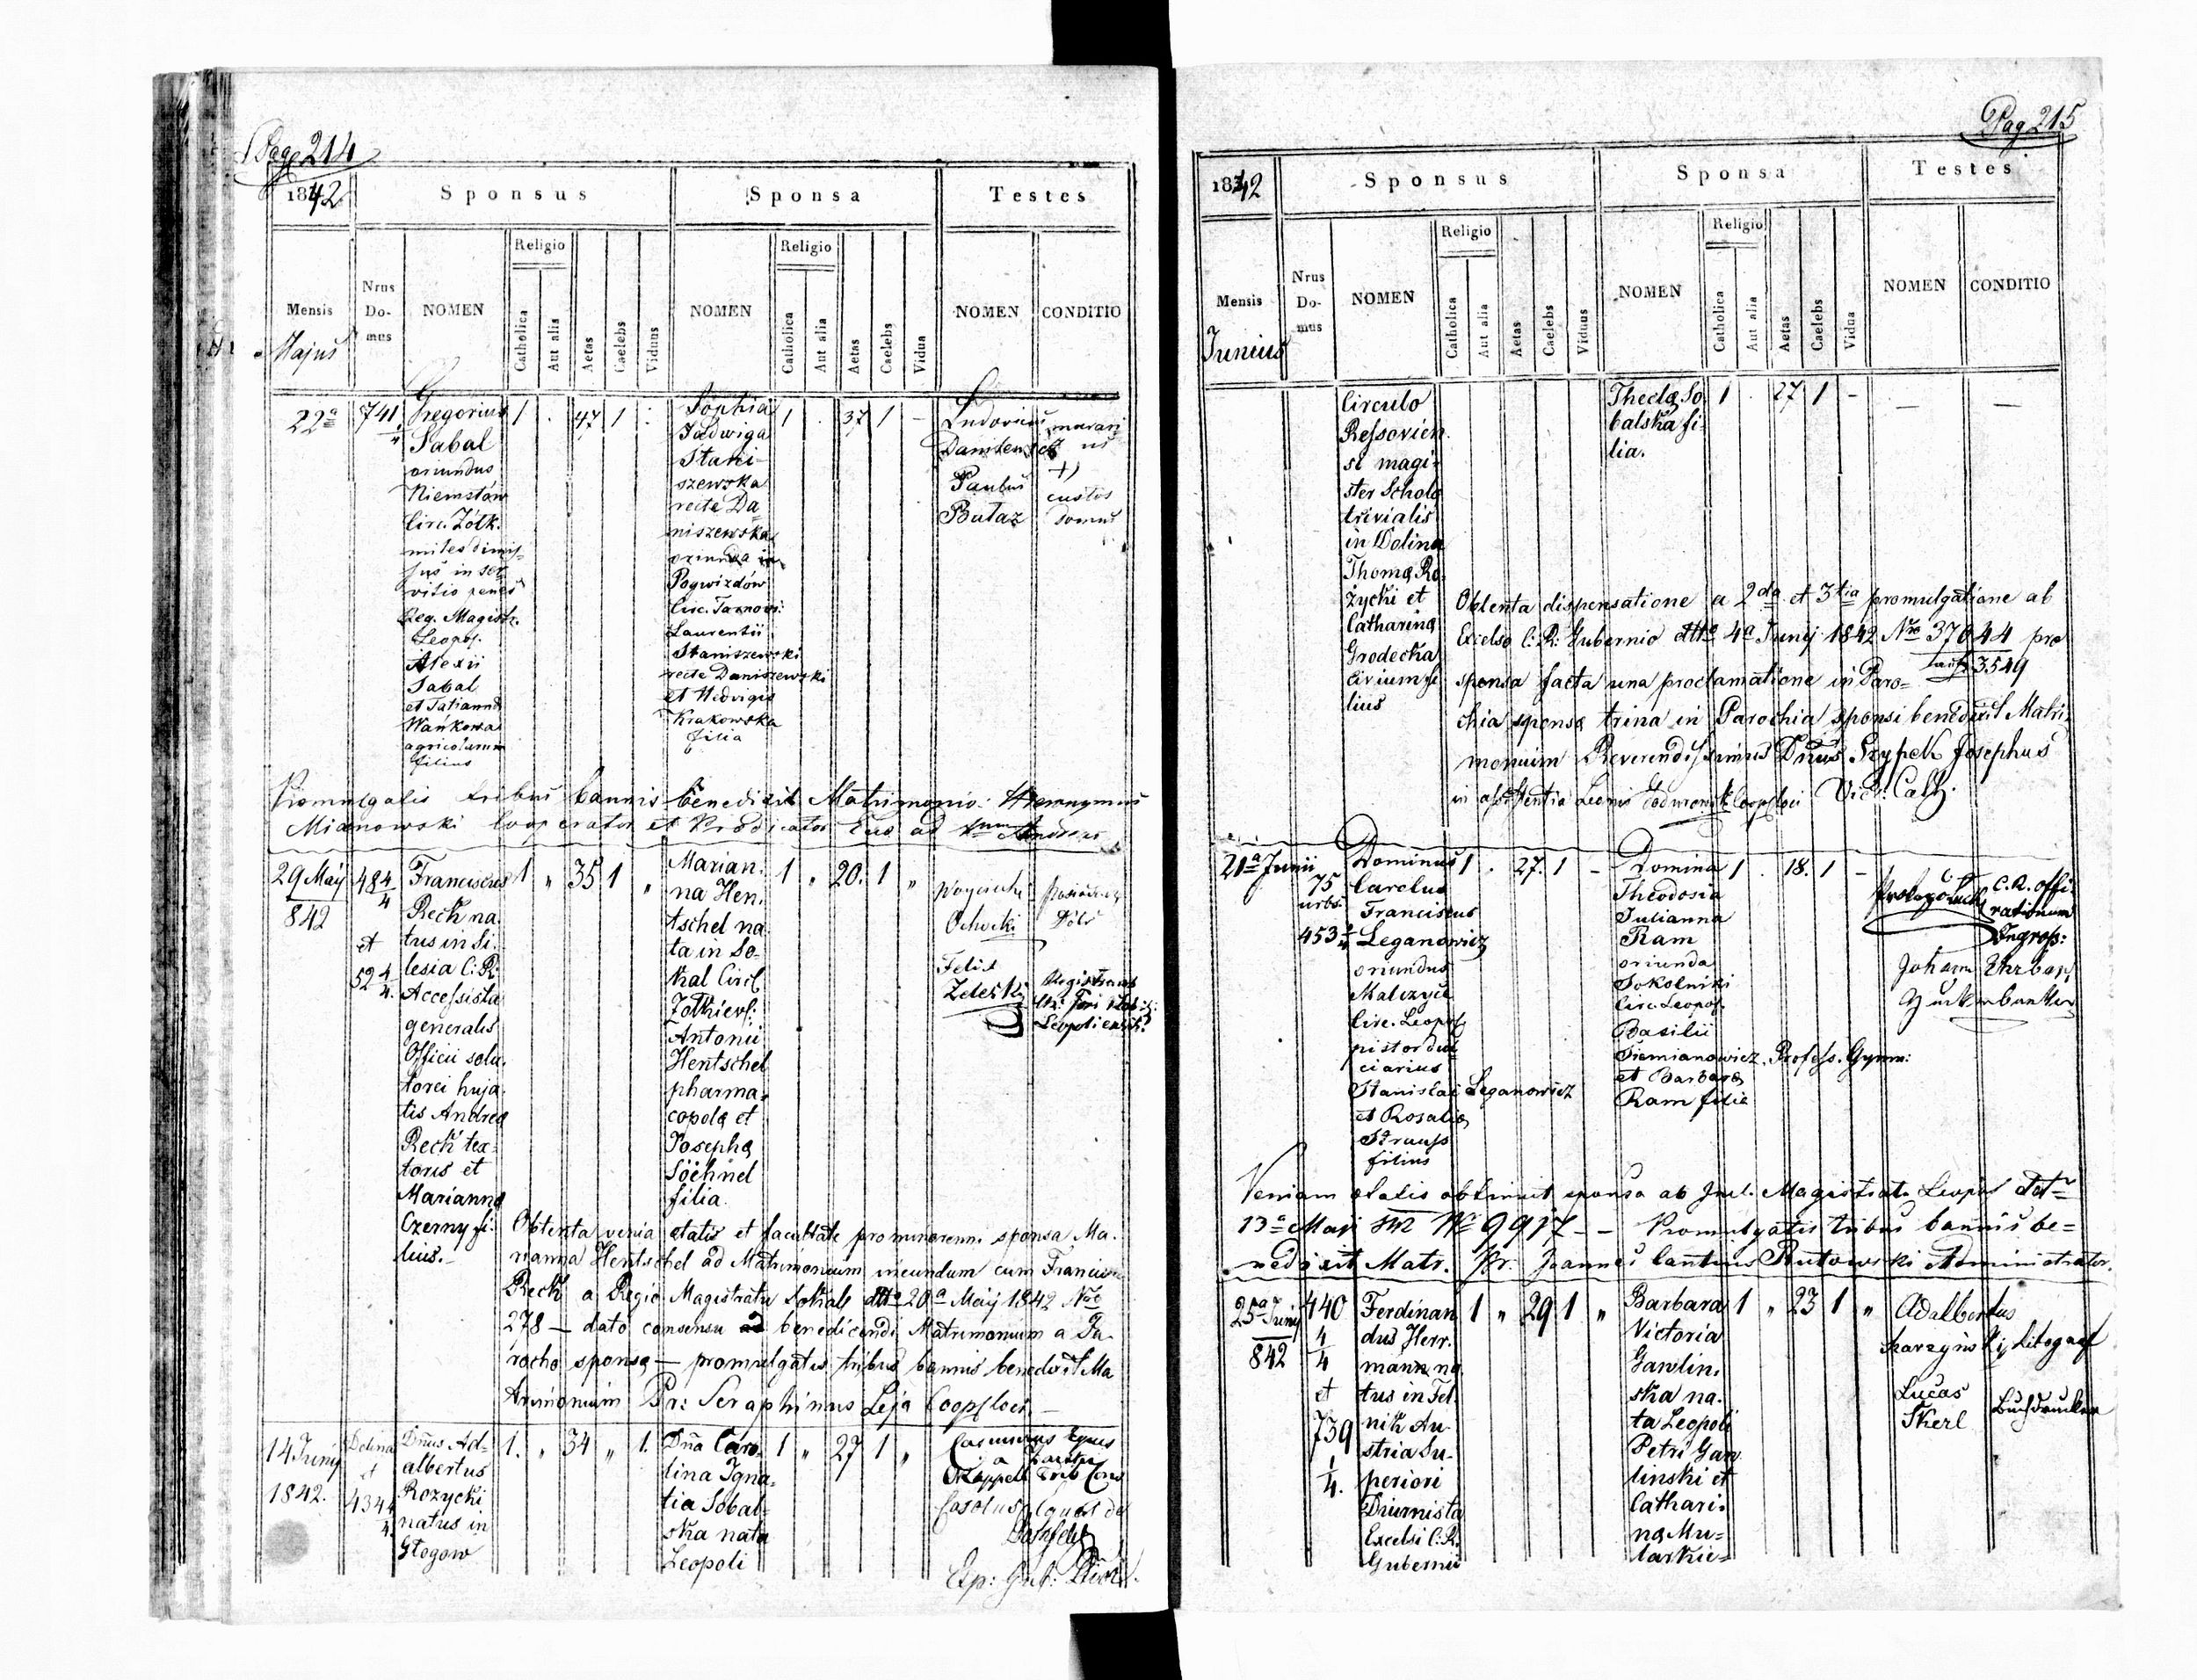 Pag 214
1842
Sponsus
Sponsa
Testes
Mensis
Majus
Nrus Do-
mus
NOMEN
Religio
Catholica
Aut alia
Aetas
Caelebs
Viduus
NOMEN
Religio
Catholica
Aut alia
Aetas
Caelebs
Vidua
NOMEN
CONDITIO
22a
741
Gregorius
Sabal
oriundus
Niemstów
Circ. Żółk.
miles dimis-
sus in ser
vitio penes
Reg. Magistr.
Leopol.
Alexii
Sabal
et Tatianna
Wańkowa
agricolarum
filius
1 . 47 1
Sophia
Jadwiga
Stani-
szewska
recte Da-
niszewska
oriunda in
Pogwizdów
Circ. Tarnow:
Laurentii
Staniszewski
recte Daniszewski
et Hedvigis
Krakowska
filia
1 . 37 1 -
Ludovicus
Paulus
Butaz
murari
us
+)
custos
domus
Promulgatis tribus bannis benedixit Matrimonio: Hieronymus
Mianowski Cooperator et Prædicator
29 May
842
484
4
et
52 4
4.
Franciscus
Rech na.
tus in Si.
lesia C: R:
Accessista
generalis
Officii solu.
torei huja.
tis Andrea
Rech tex-
toris et
Marianna
Czerny fi.
lius.-
1 " 35 1 "
Marian.
na Hen.
tschel na.
ta in So-
kal Circl
Zolkievs:
Antonii
Hentschel
pharma.
copola et
Josepha
Söehnel
filia.
1 " 20. 1 "
Ochocki
Felix
Zeleski
Registrans
Leopoliensis
Obtenta venia etatis et facultate pro minorenni sponsa Ma.
rianna Hentschel ad Matrimonium ineundum cum Francisco
Rech a Regio Magistratu Sokal dtto 20a May 1842 Nro
278 — dato consensu ad benedicendi Matrimonium a Pa.
rocho sponsa — promulgatis tribus bannis benedixit Ma
trimonium Pr: Seraphinus Leja Coop loci. —
14 Junij
1842.
Dolina
et
434 4
4
Dnus Ad-
albertus
Rozycki
natus in
Głogow
1. " 34 " 1.
Dna Caro-
lina Igna-
tia Sobal-
ska nata
Leopoli
1 " 27 1 "
Casimirus Eques
a
Carolus
Pag 215
1842
Sponsus
Sponsa
Testes
Mensis
Junius
Nrus
Do-
mus
NOMEN
Religio
Catholica
Aut alia
Aetas
Caelebs
Viduus
NOMEN
Religio
Catholica
Aut alia
Aetas
Caelebs
Vidua
NOMEN
CONDITIO
Circulo
Ressovien
si magi-
ster Schola
trivialis
in Dolina
Thoma Ro-
życki et
Catharina
Grodecka
civium fi
lius
Thecla So
balska fi-
lia.
1 . 27 1 -
— —
Obtenta dispensatione a 2da et 3tia promulgatione ab
Excelso C: R: Gubernio dtto 4a Junij 1842 Nro 37644 pro
sponsa facta una proclamatione in Paro-
3549
chia sponsa trina in Parochia sponsi benedixit Matri-
monium Reverendissimus Dnus Szypek Josephus
in assistentia Leonis Coop loci Vice: Cath.
21a Junii
75
urbs.
453 2/4
Dominus
Carolus
Franciscus
Leganowicz
oriundus
Malczyce
Circ. Leopol
pistor dul
ciarius
Stanislai Leganowicz
et Rosalia
Strauss
filius
1 . 27. 1 -
Domina
Theodosia
Julianna
Ram
oriunda
Sokolniki
Circ. Leopol.
Basilii
Siemianowicz. Profess. Gymn:
et Barbara
Ram filia
1 . 18. 1 -
C. R. offi.
rationum
Ingross:
Johann
Zuckerbacker
Veniam etatis obtinuit sponsa ab Incl. Magistrat. Leopol dtto
13a Maji 842 Nro 9917 — Promulgatis tribus bannis be=
nedixit Matr. Pr: Joannes Cantius Rutowski Administrator.
25a Junij
842
440
4
4
et
739
1
4.
Ferdinan
dus Herr.
mann na
tus in Fel.
nik Au-
stria Su-
periori
Diurnista
Excelsi C: R.
Gubernii
1 " 29 1 "
Barbara
Victoria
Gawlin.
ska na.
ta Leopoli
Petri Gaw
linski et
Cathari.
na Mu-
larkie=
1 " 23 1 "
Adalbertus
Karzyński, Litograf
Lucas
Skerl
Buchdrucker